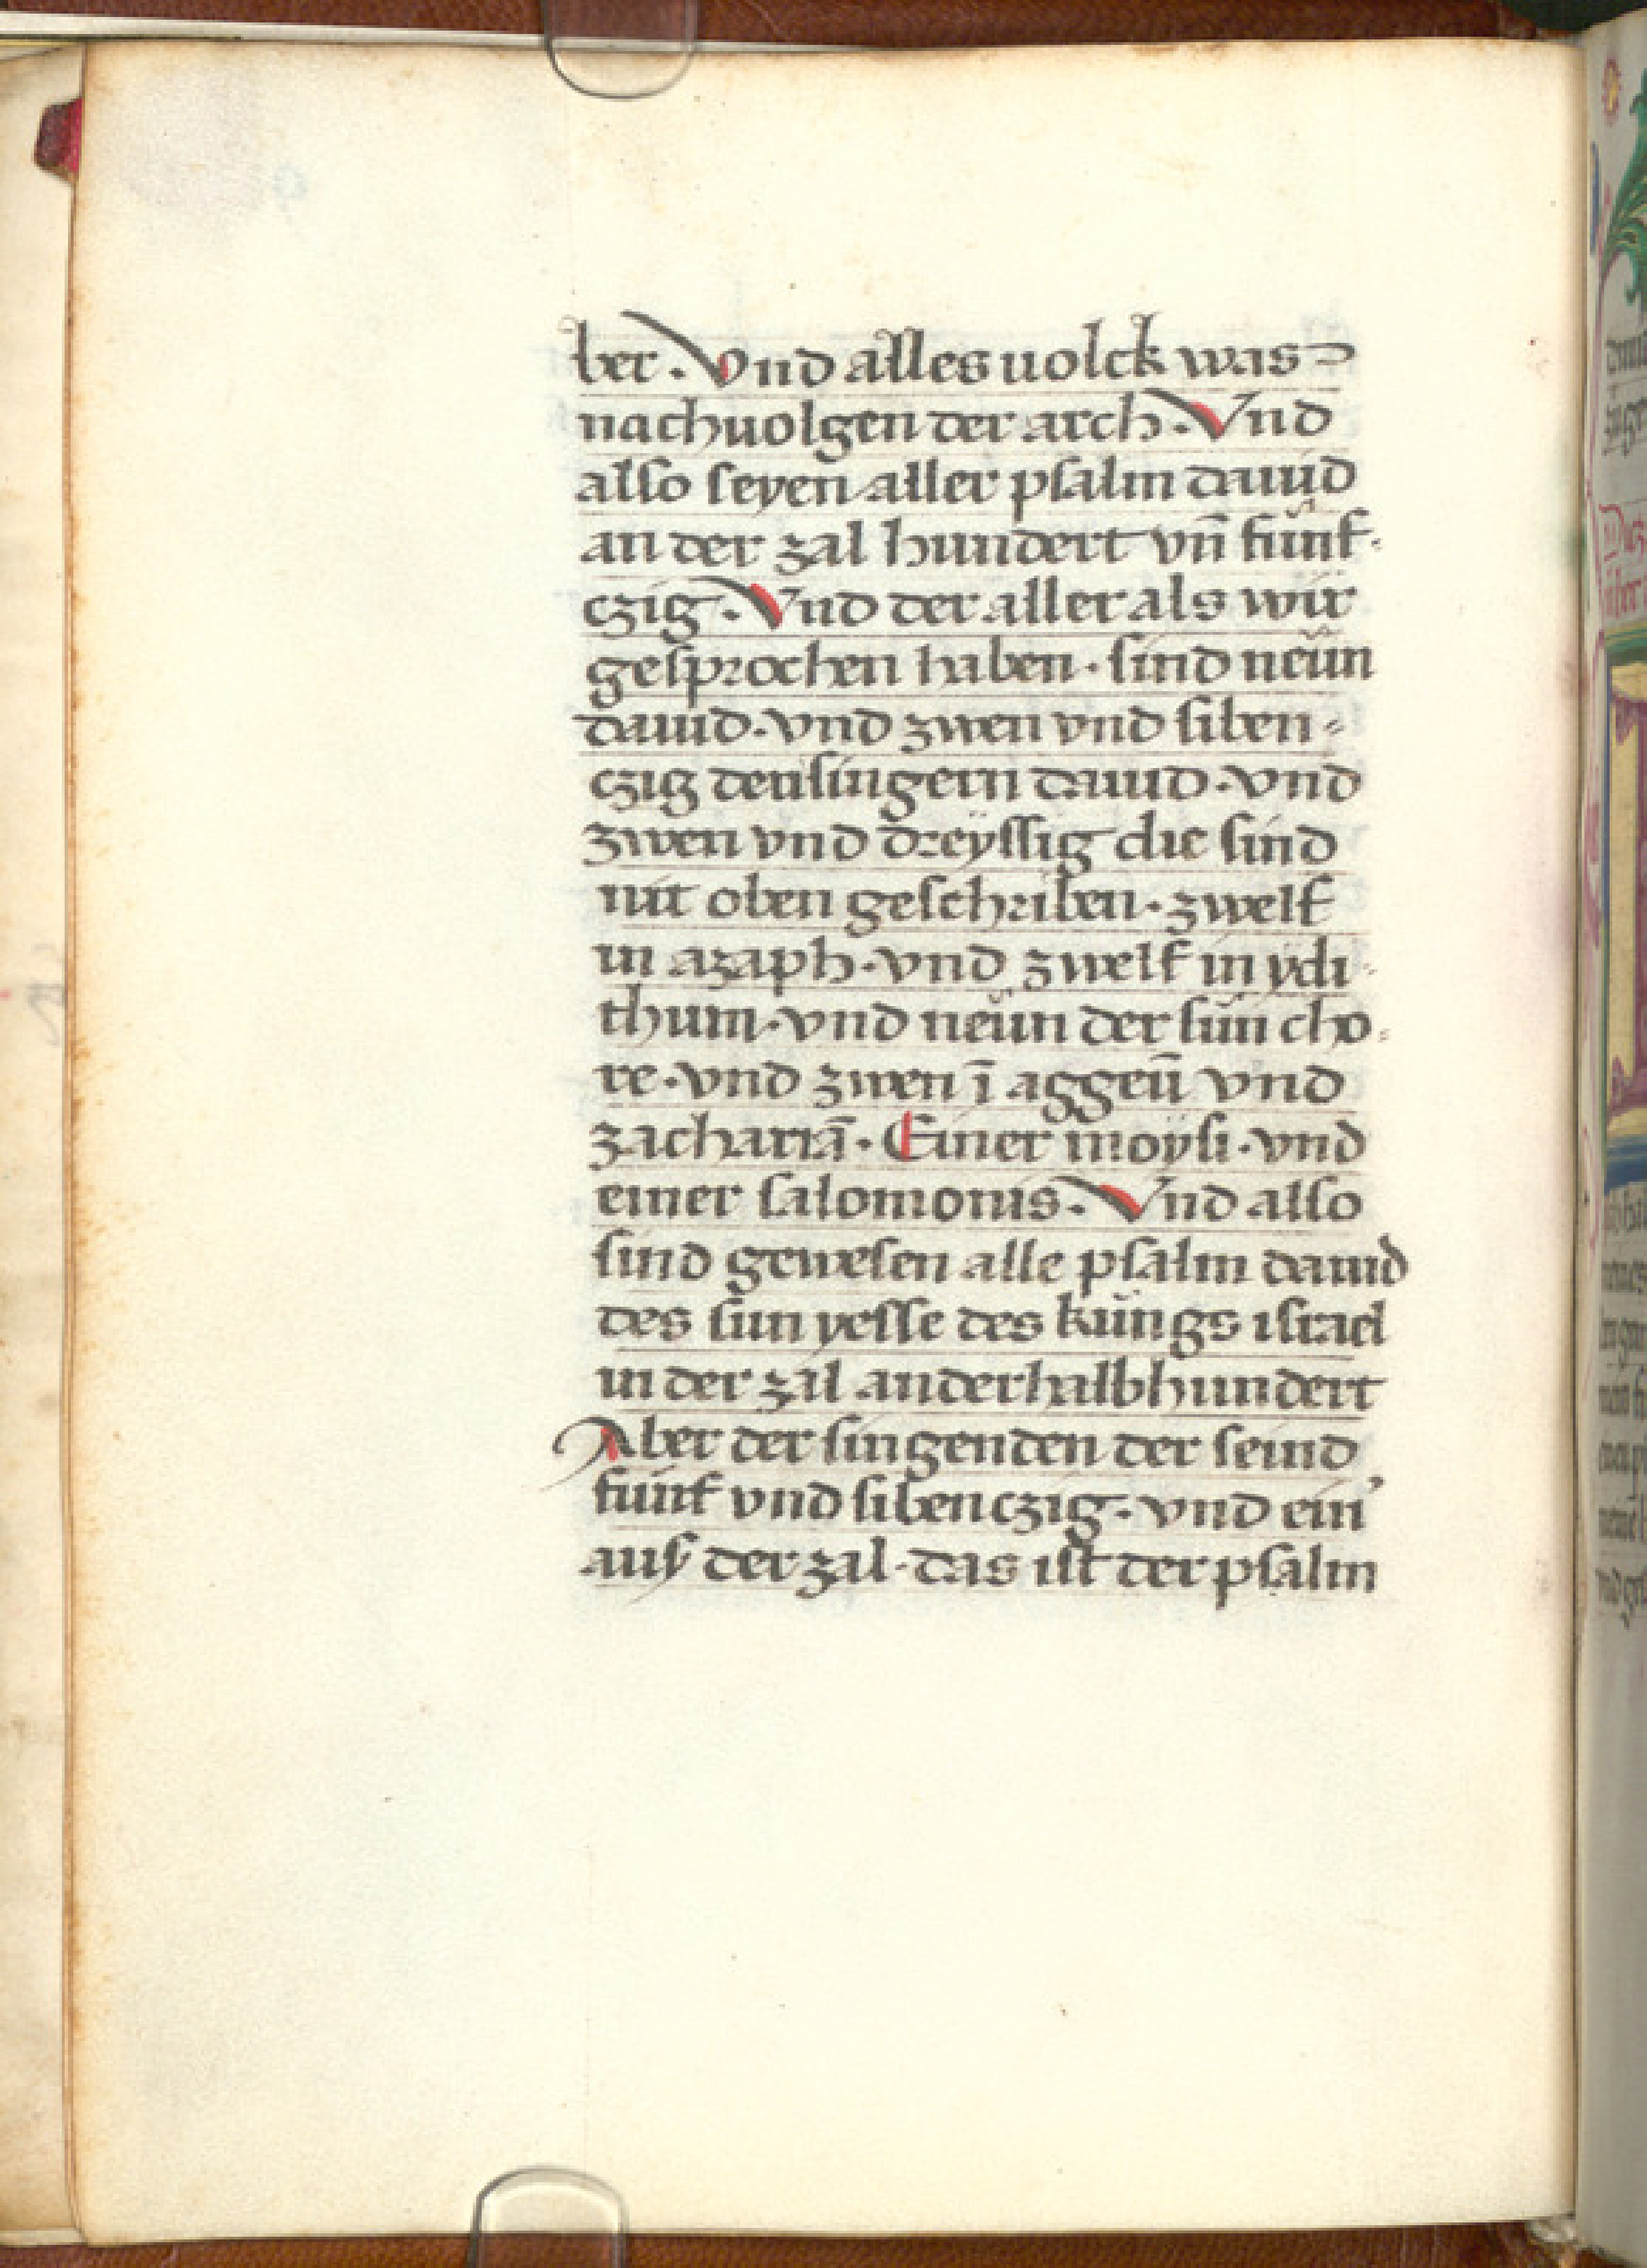 ber. Vnd alles uolck was
nachuolgen der arch. Vnd
also seyen aller psalm dauid
an der zal hundert vn̄ fünf-
czig. Vnd der aller als wir
gesprochen haben. sind neün
dauid. vnd zwen vnd siben-
czig den singern dauid. vnd
zwen vnd dreyssig die sind
nit oben geschriben. zwelf
in azaph. vnd zwelf in ydi-
thum. vnd neün der sün cho-
re. vnd zwen ī aggeū vnd
zachariā. Einer moÿsi. vnd
einer salomonis. Vnd also
sind gewesen alle psalm dauid
des sun yesse des küngs israel
in der zal anderhalbhundert
Aber der singenden der seind
fünf vnd sibenczig. vnd ein'
auß der zal. das ist der psalm